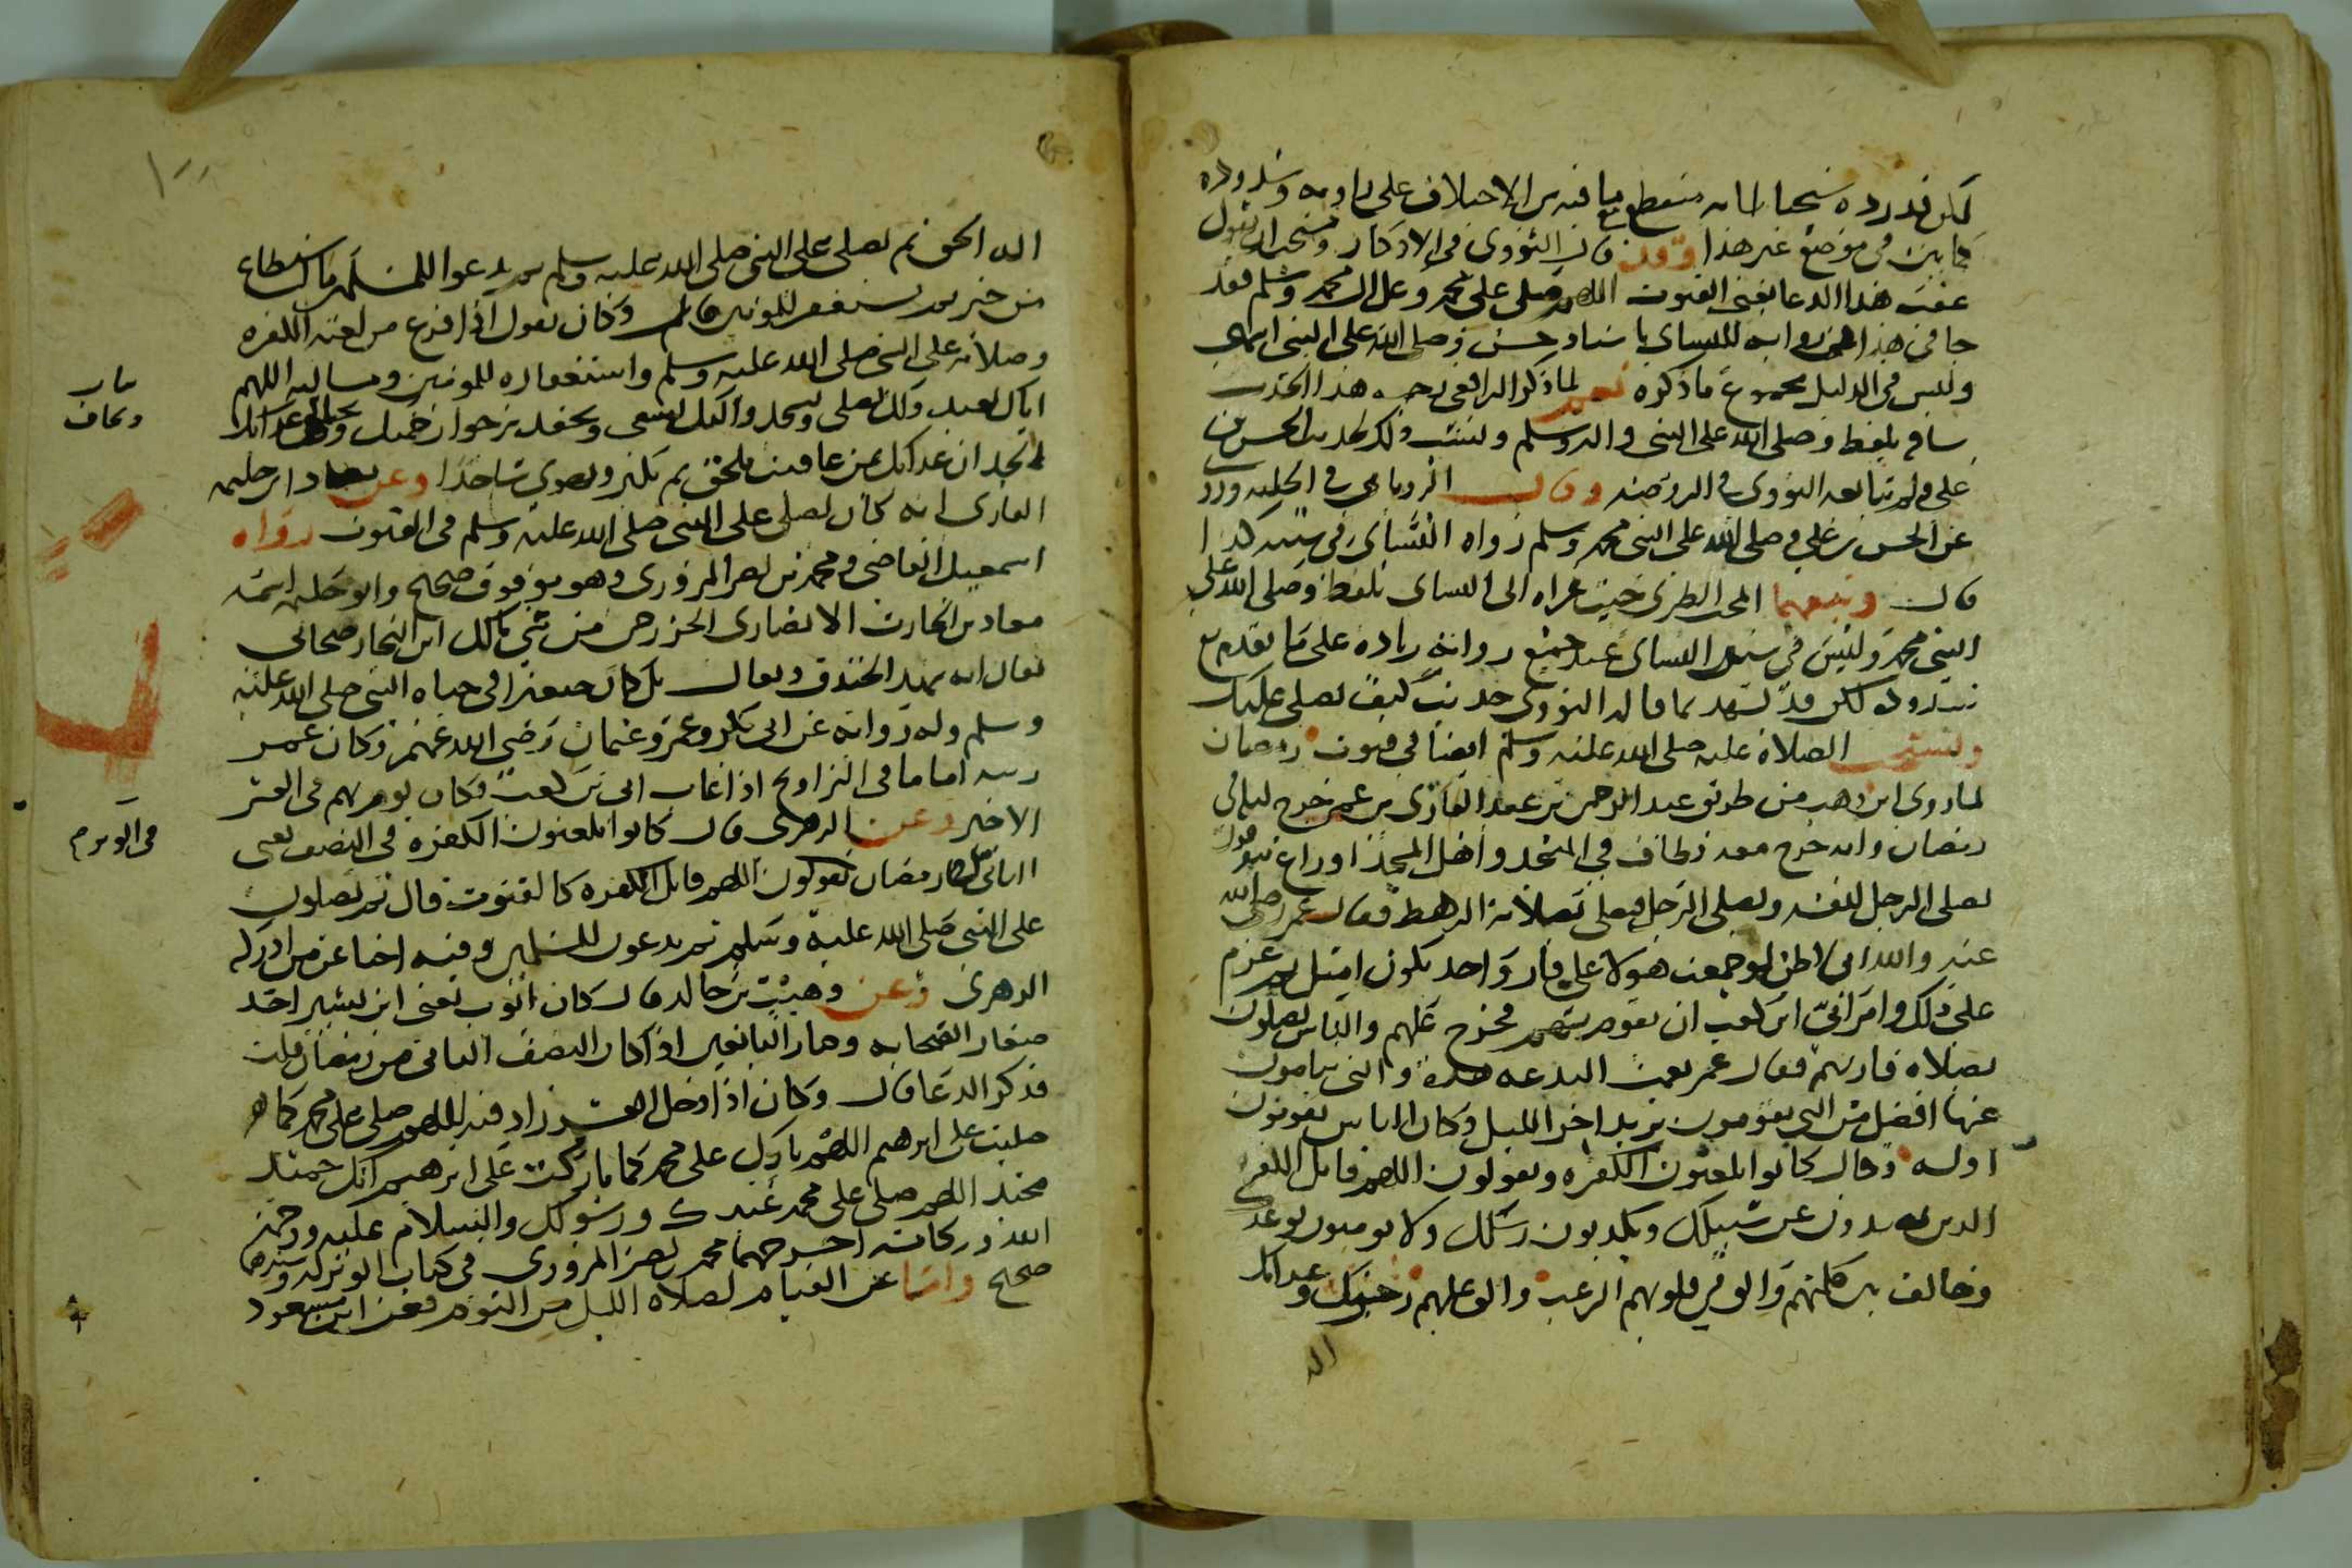 لكن قد رده شيخنا بانه منقطع مع ما فيه من الاختلاف على راويه وشذوذه
كما بين في موضع غير هذا وقد قال النووي في الاذكار ويستحب ان يقول
عقب هذا الدعا يعني القنوت اللهم صلى على محمد وعلى ال محمد وسلم فقد
جا في هذا الحديث رواية للنساى باسناد حسن وصلى الله على النبي انتهى
وليس في الدليل مجموع ما ذكره نعم لما ذكر الرافعي رحمه هذا الحديث
ساقه بلفظ وصلى الله على النبي واله وسلم ولينسب ذلك لحديث الحسن بن
علي ولم يتابعه النووي في الروضة وقال الروياني في الحلية ورد
عن الحسن بن علي وصلى الله على النبي محمد وسلم رواه النسأى في سننه كذا
قال وتبعهما المحب الطبري حيث عزاه الى النساى بلفظ وصلى الله على
النبي محمد وليس في سنن النساى عند جميع رواته زيادة على ما تقدم مع
شذوذه لكن قد يشهد لما قاله النووي حديث كيف نصلي عليك
وتستحب الصلاة عليه صلى الله عليه وسلم ايضا في قنوت رمضان
لما روى ابن وهب من طريق عبد الرحمن بن عبد القارى بن عمر خرج ليالي
رمضان وانه خرج معه فطاف في المسجد واهل المسجد اوزاع متفرقون
يصلي الرجل لنفسه ويصلي الرجل فيصلي بصلاته الرهط فقال عمر رضي الله
عنه والله اني لاظن لو جمعت هولا على قار واحد يكون امثل ثم عزم
على ذلك وامر ابي ابن كعب ان يقوم بهم فخرج عليهم والناس يصلون
بصلاة قاريهم فقال عمر نعمت البدعة هذه والتي ينامون
عنها افضل من التي يقومون يريد اخر الليل وكان الناس يقومون
اوله وقال كانوا يلعنون الكفره ويقولون اللهم قاتل الكفره
الذين يصدون عن سبيلك ويكذبون رسلك ولا يومنون بوعدك
وخالف بين كلمتهم والق في قلوبهم الرعب والق عليهم رجزك وعذابك
اله
اله الحق ثم يصلي على النبي صلى الله عليه وسلم ثم يدعوا للمسلمين ما استطاع
من خير ثم يستغفر للمومنين قال وكان يقول اذا فرغ من لعنة الكفره
وصلاته على النبي صلى الله عليه وسلم واستغفاره للمومنين ومسالته اللهم
اياك نعبد ولك نصلي ونسجد واليك نسعى ونحفد نرجوا رحمتك ونخاف عذابك
الجد ان عذابك لمن عاديت ملحق ثم يكبر ويهوي ساجدا وعن معاذ ابي حليمه
القارى انه كان يصلي على النبي صلى الله عليه وسلم في القنوت رواه
اسمعيل القاضي ومحمد بن نصر المروزي وهو موقوف صحيح وابو حليمه اسمه
معاذ بن الحارث الانصارى الخزرجي من بني مالك ابن النجار صحابي
يقال انه شهد الخندق ويقال بل كان صغيرا في حياة النبي صلى الله عليه
وسلم وله رواية عن ابي بكر وعمر وعثمان رضي الله عنهم وكان عمر
رتبه اماما في التراويح اذا غاب ابي بن كعب وكان يوم بهم في العشر
الاخير وعن الزهري قال كانوا يلعنون الكفره في النصف يعني
الثاني من رمضان يقولون اللهم قاتل الكفره كالقنوت قال ثم يصلون
على النبي صلى الله عليه وسلم ثم يدعون للمسلمين وفيه اخبار عن من ادركه
الزهري وعن وهيب بن خالد قال كان ايوب يعني ابن بشير احد
صغار الصحابه وكبار التابعين اذا كان النصف الثاني من رمضان قنت
فذكر الدعا قال وكان اذا دخل العشر زاد فيه اللهم صلى على محمد كما
صليت على ابرهيم اللهم بارك على محمد كما باركت على ابرهيم انك حميد
مجيد اللهم صلى على محمد عبدك ورسولك والسلام عليه ورحمة
الله وبركاته اخرجهما محمد بن نصر المروزي في كتاب الوتر له وسندهما
صحيح واما عن القيام لصلاة الليل من النوم فعن ابن مسعود
ونخاف
في الوتر م